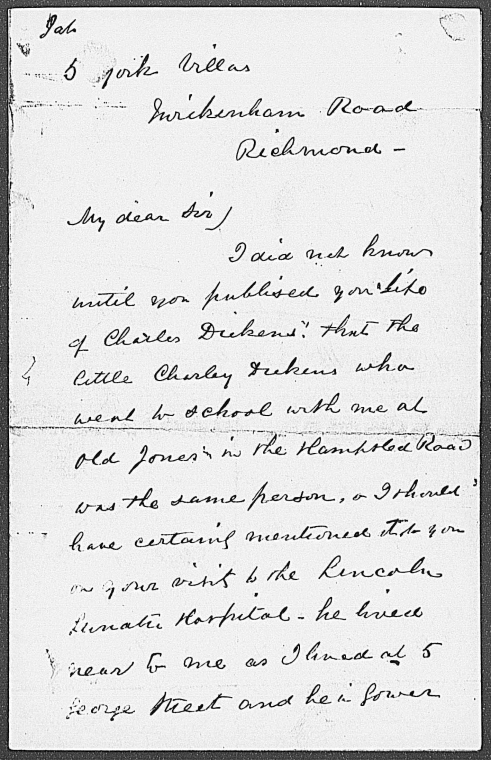 5 york Villas
Twickenham Road
Richmond -
My dear Sir/
I did not know
until you publised your "Life
of Charles Dickens" that the
little Charley Dickens who
went to school with me at
old Jones's in the Hampsted Road
was the same person, or I should
have certainly mentioned it to you
on your visit to the Lincoln
Lunatic Hospital - he lived
near to me as I lived at 5
George Street and he in Gower